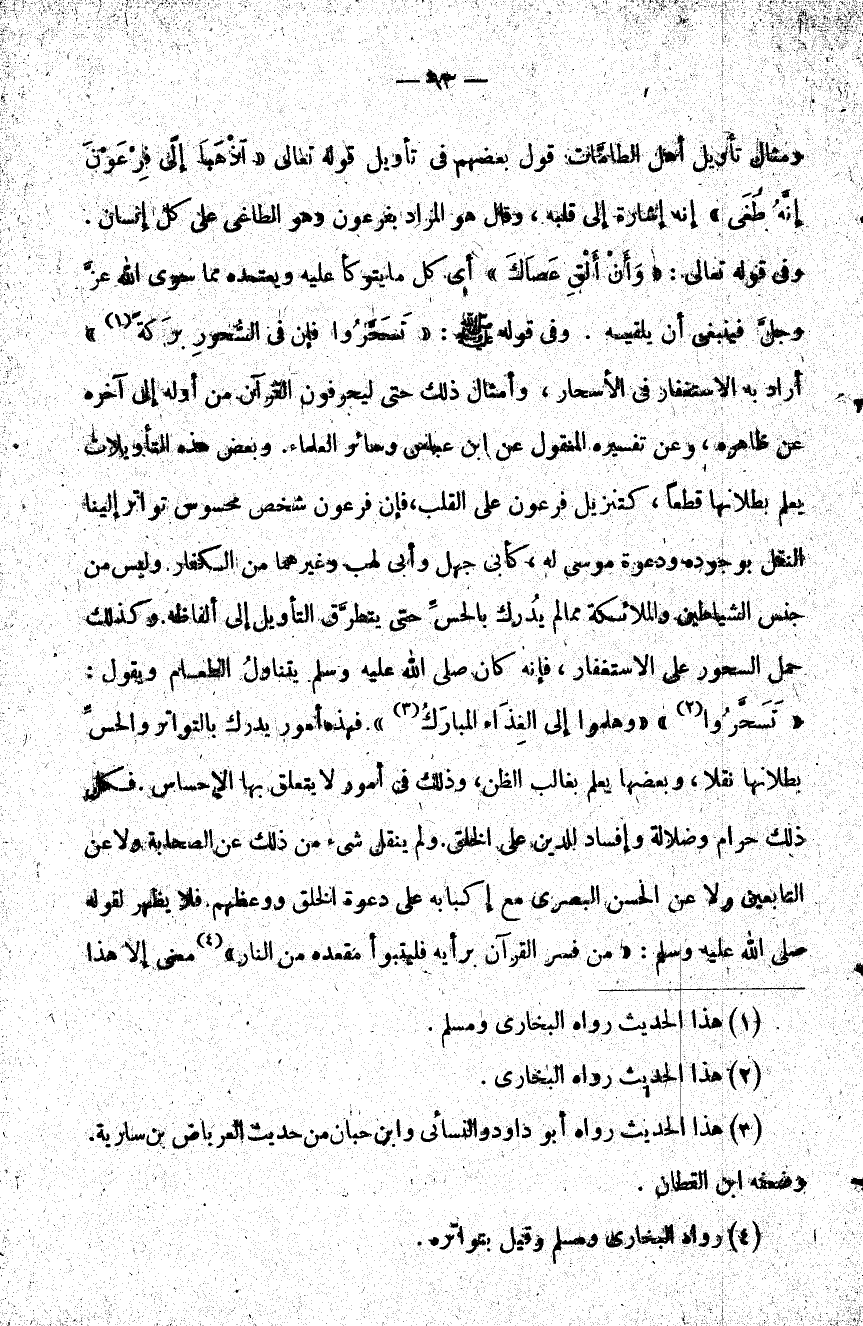 — ٩٣ —
ومثال تأويل أهل الطامَّات قول بعضهم فى تأويل قوله تعالى « آذْهَبَا إِلَى فِرْعَوْنَ
إِنَّهُ طَغَى » إنه إشارة إلى قلبه ، وقال هو المراد بفرعون وهو الطاغى على كل إنسان .
وفى قوله تعالى : « وَأَنْ أَلْقِ عَصَاكَ » أى كل مايتوكأ عليه ويعتمده مما سوى الله عزَّ
وجلَّ فينبغى أن يلقيه . وفى قوله ﷺ : « تَسَحَّرُوا فإن فى السَّحورِ بَرَكَةً (١) »
أراد به الاستغفار فى الأسحار ، وأمثال ذلك حتى ليحرفون القرآن من أوله إلى آخره
عن ظاهره ، وعن تفسيره المنقول عن ابن عباس وسائر العلماء. وبعض هذه التأويلات
يعلم بطلانها قطعاً ، كتنزيل فرعون على القلب،فإن فرعون شخص محسوس تواتر إلينا
النقل بوجوده ودعوة موسى له ،كأبى جهل وأبى لهب وغيرهما من الكفار وليس من
جنس الشياطين والملائكة ممالم يُدرك بالحسِّ حتى يتطرَّق التأويل إلى ألفاظه.وكذلك
حمل السحور على الاستغفار ، فإنه كان صلى الله عليه وسلم يتناولُ الطعام ويقول :
« تَسَحَّرُوا(٢) » «وهلموا إلى الغِذَاء المبارَكُ(٣) ». فهذه أمور يدرك بالتواتر والحسِّ
بطلانها نقلا ، وبعضها يعلم بغالب الظن، وذلك فى أمور لا يتعلق بها الإحساس .فكل
ذلك حرام وضلالة وإفساد للدين على الخلق.ولم ينقل شىء من ذلك عن الصحابة ولاعن
التابعين ولا عن الحسن البصرى مع إكبابه على دعوة الخلق ووعظهم.فلا يظهر لقوله
صلى الله عليه وسلم : « من فسر القرآن برأيه فليتبوأ مقعده من النار»(٤) معنى إلا هذا
(١) هذا الحديث رواه البخارى ومسلم .
(٢) هذا الحديث رواه البخارى .
(٣) هذا الحديث رواه أبو داود والنسائى وابن حبان من حديث العرباض بن سارية.
وضعفه ابن القطان .
(٤) رواه البخارى ومسلم وقيل بتواتره .